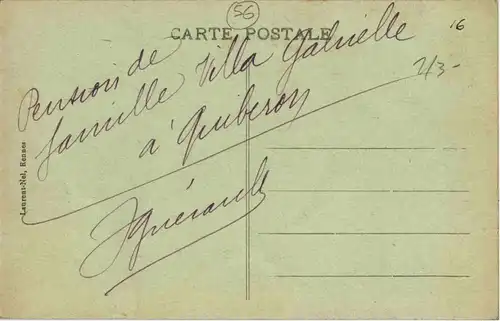 56
16
CARTE POSTALE
Pension de
famille Villa Gabrielle
à Quiberon
2/3 -
Laurent-Nel, Rennes